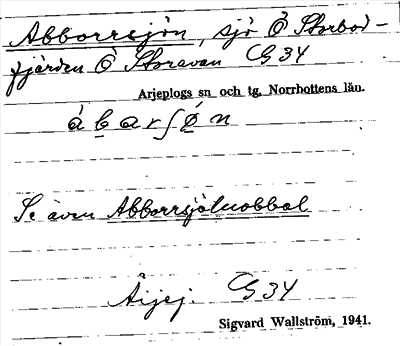 Abborrsjön, sjö Ö Storbod-
fjärden Ö Storavan G34
Arjeplogs sn och tg. Norrbottens län.
Se även Abborrsjöluobbal
G34
Sigvard Wallström, 1941.